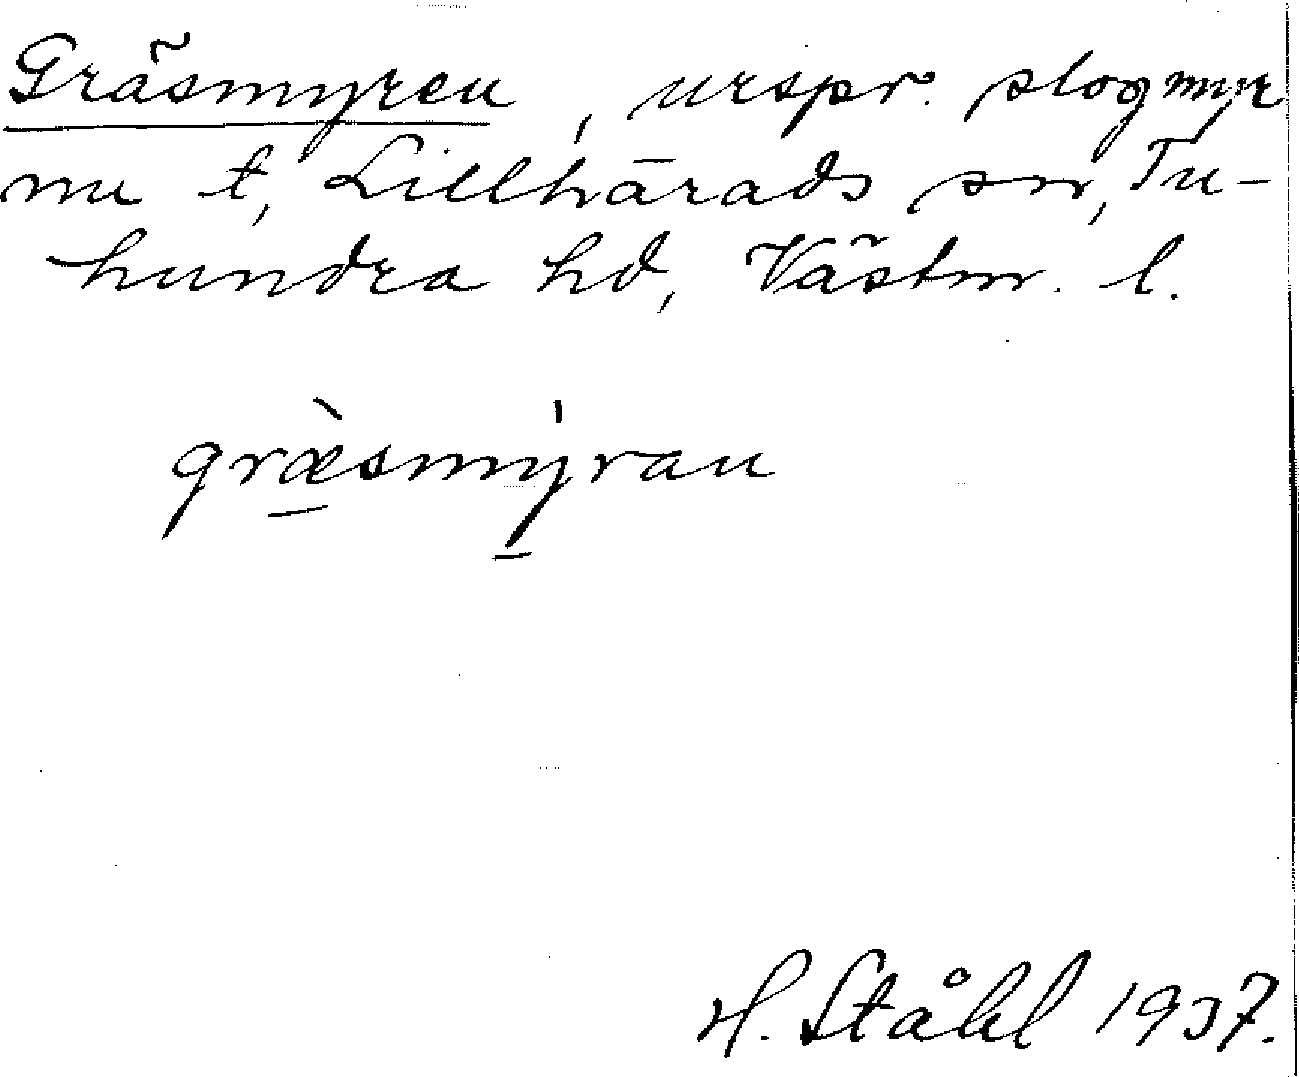 Gräsmyren, urspr. slogmyr
nu t, Lillhärads sn, Tu-
hundra hd, Västm. l.
græ̀smýran
H. Ståhl 1937.